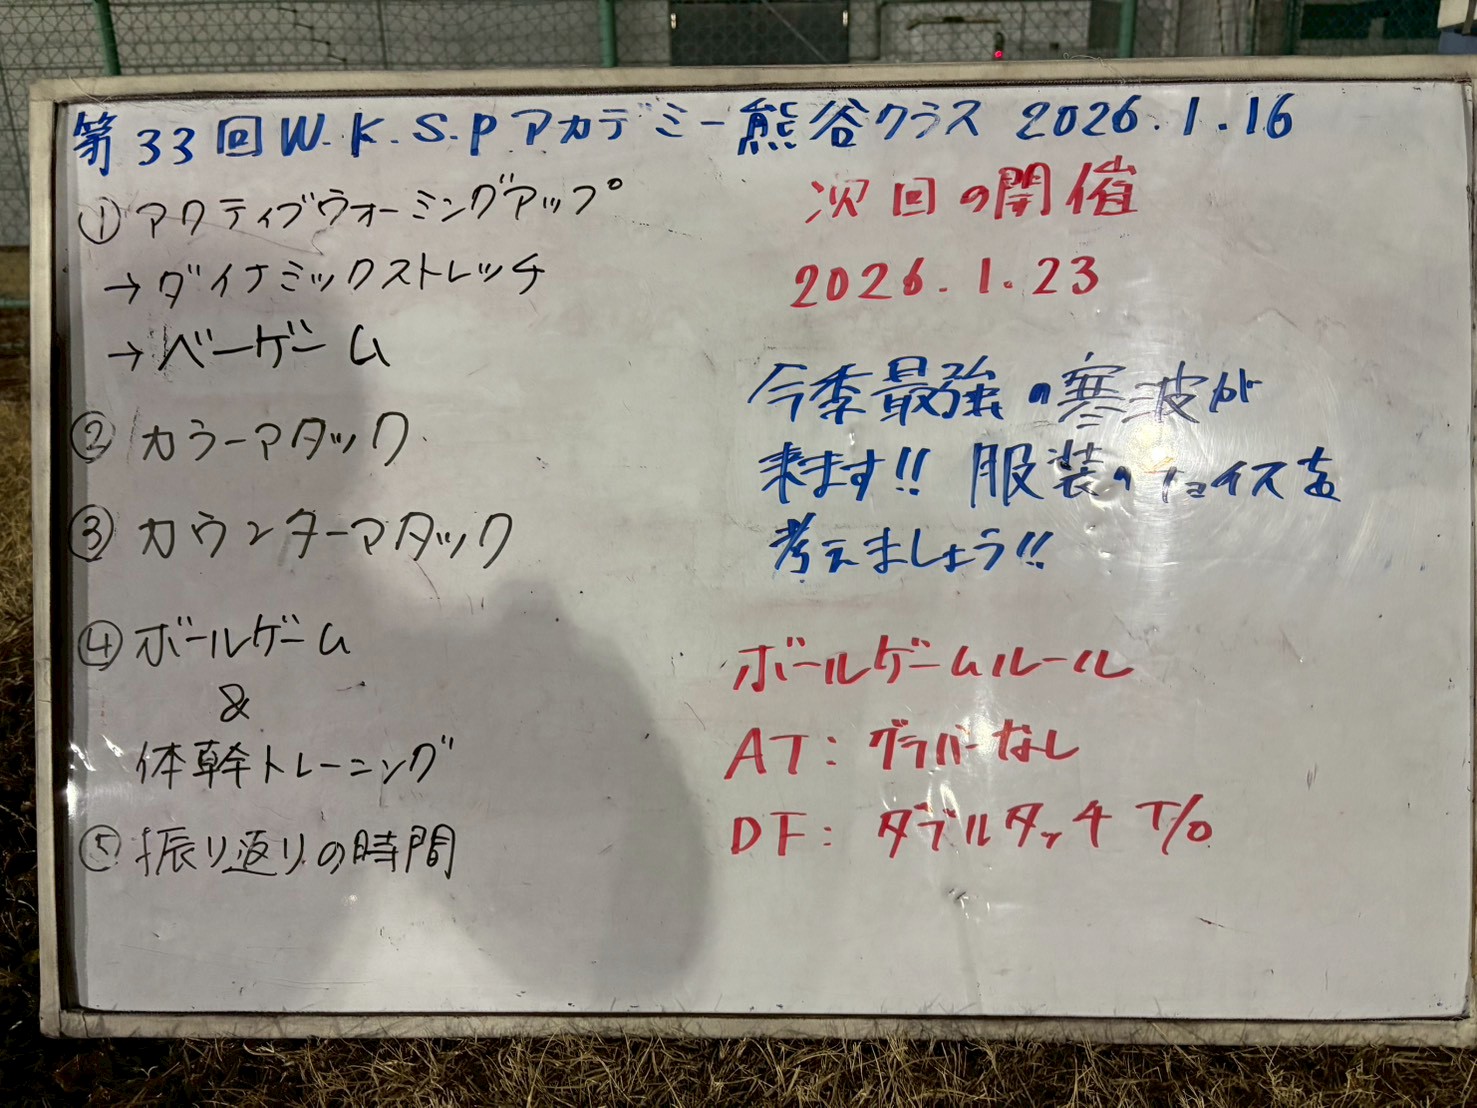 第33回W.K.S.Pアカデミー熊谷クラス 2026.1.16
①アクティブウォーミングアップ
→ダイナミックストレッチ
→ベーゲーム
②カラーアタック
③カウンターアタック
④ボールゲーム
&
体幹トレーニング
⑤振り返りの時間
次回の開催
2026.1.23
今季最強の寒波が
来ます!! 服装のチョイスを
考えましょう!!
ボールゲームルール
AT: グラバーなし
DF: ダブルタッチ T/O